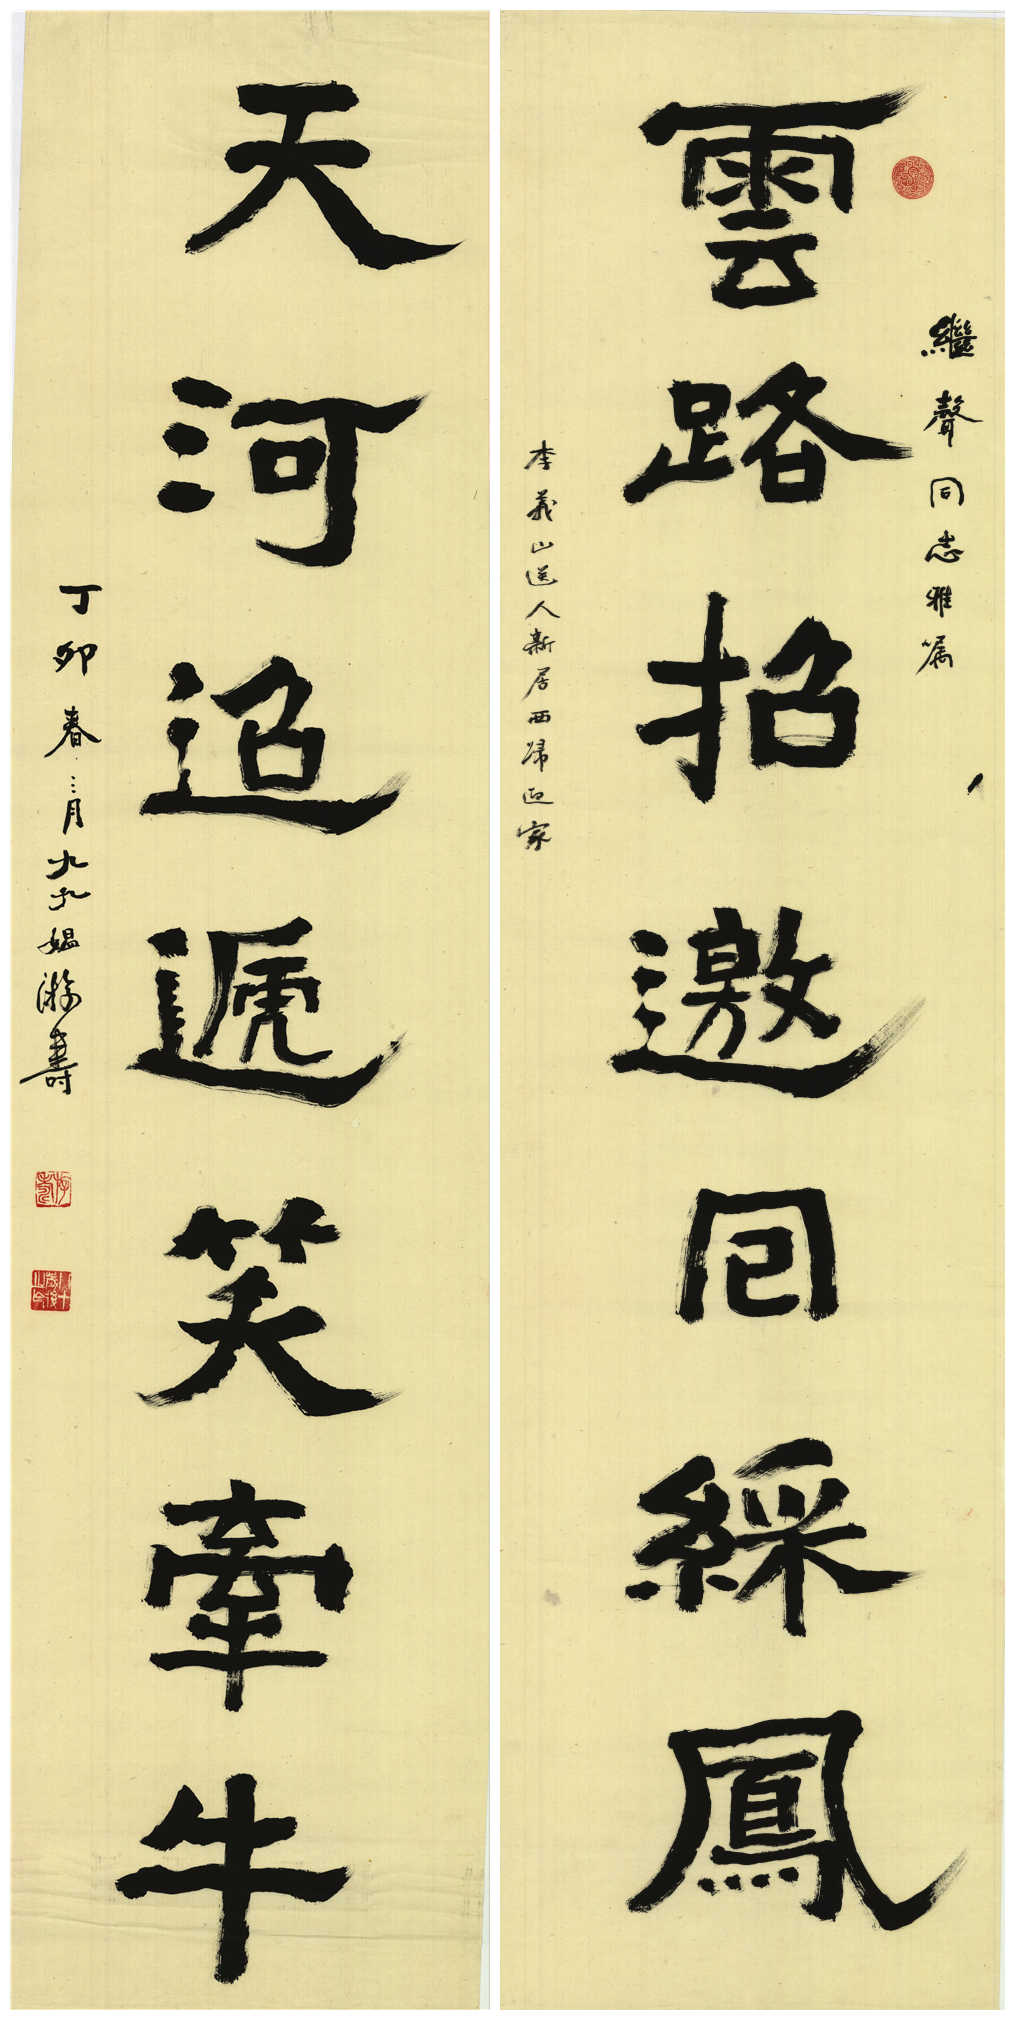 繼聲同志雅嘱
雲路招邀回綵鳳
李義山送人新居西歸迎家
天河迢遞笑牽牛
丁卯春三月九九媼游壽
游壽